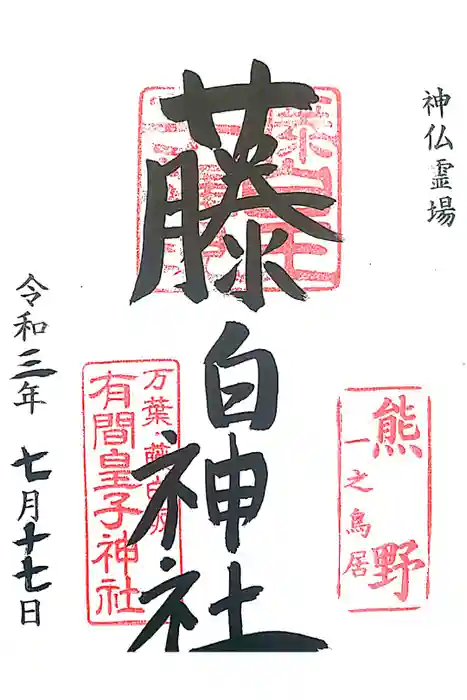 神仏霊場
藤白神社
熊野
一之鳥居
万葉・藤白坂
有間皇子神社
令和三年 七月十七日